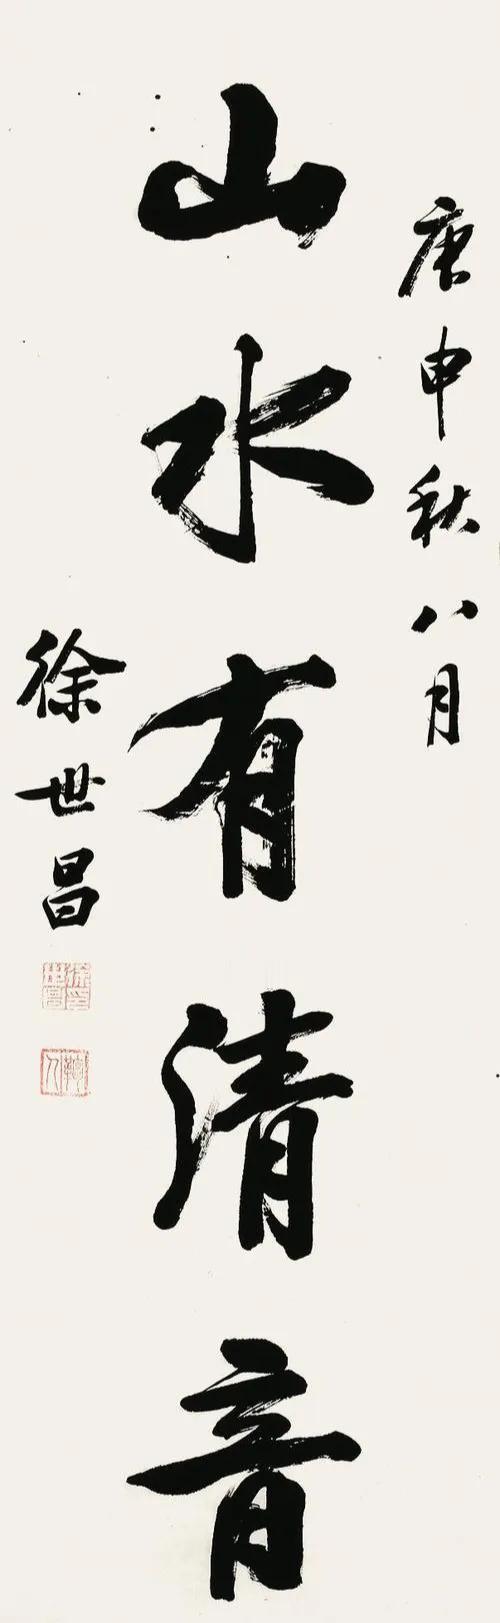 庚申秋八月
山水有清音
徐世昌